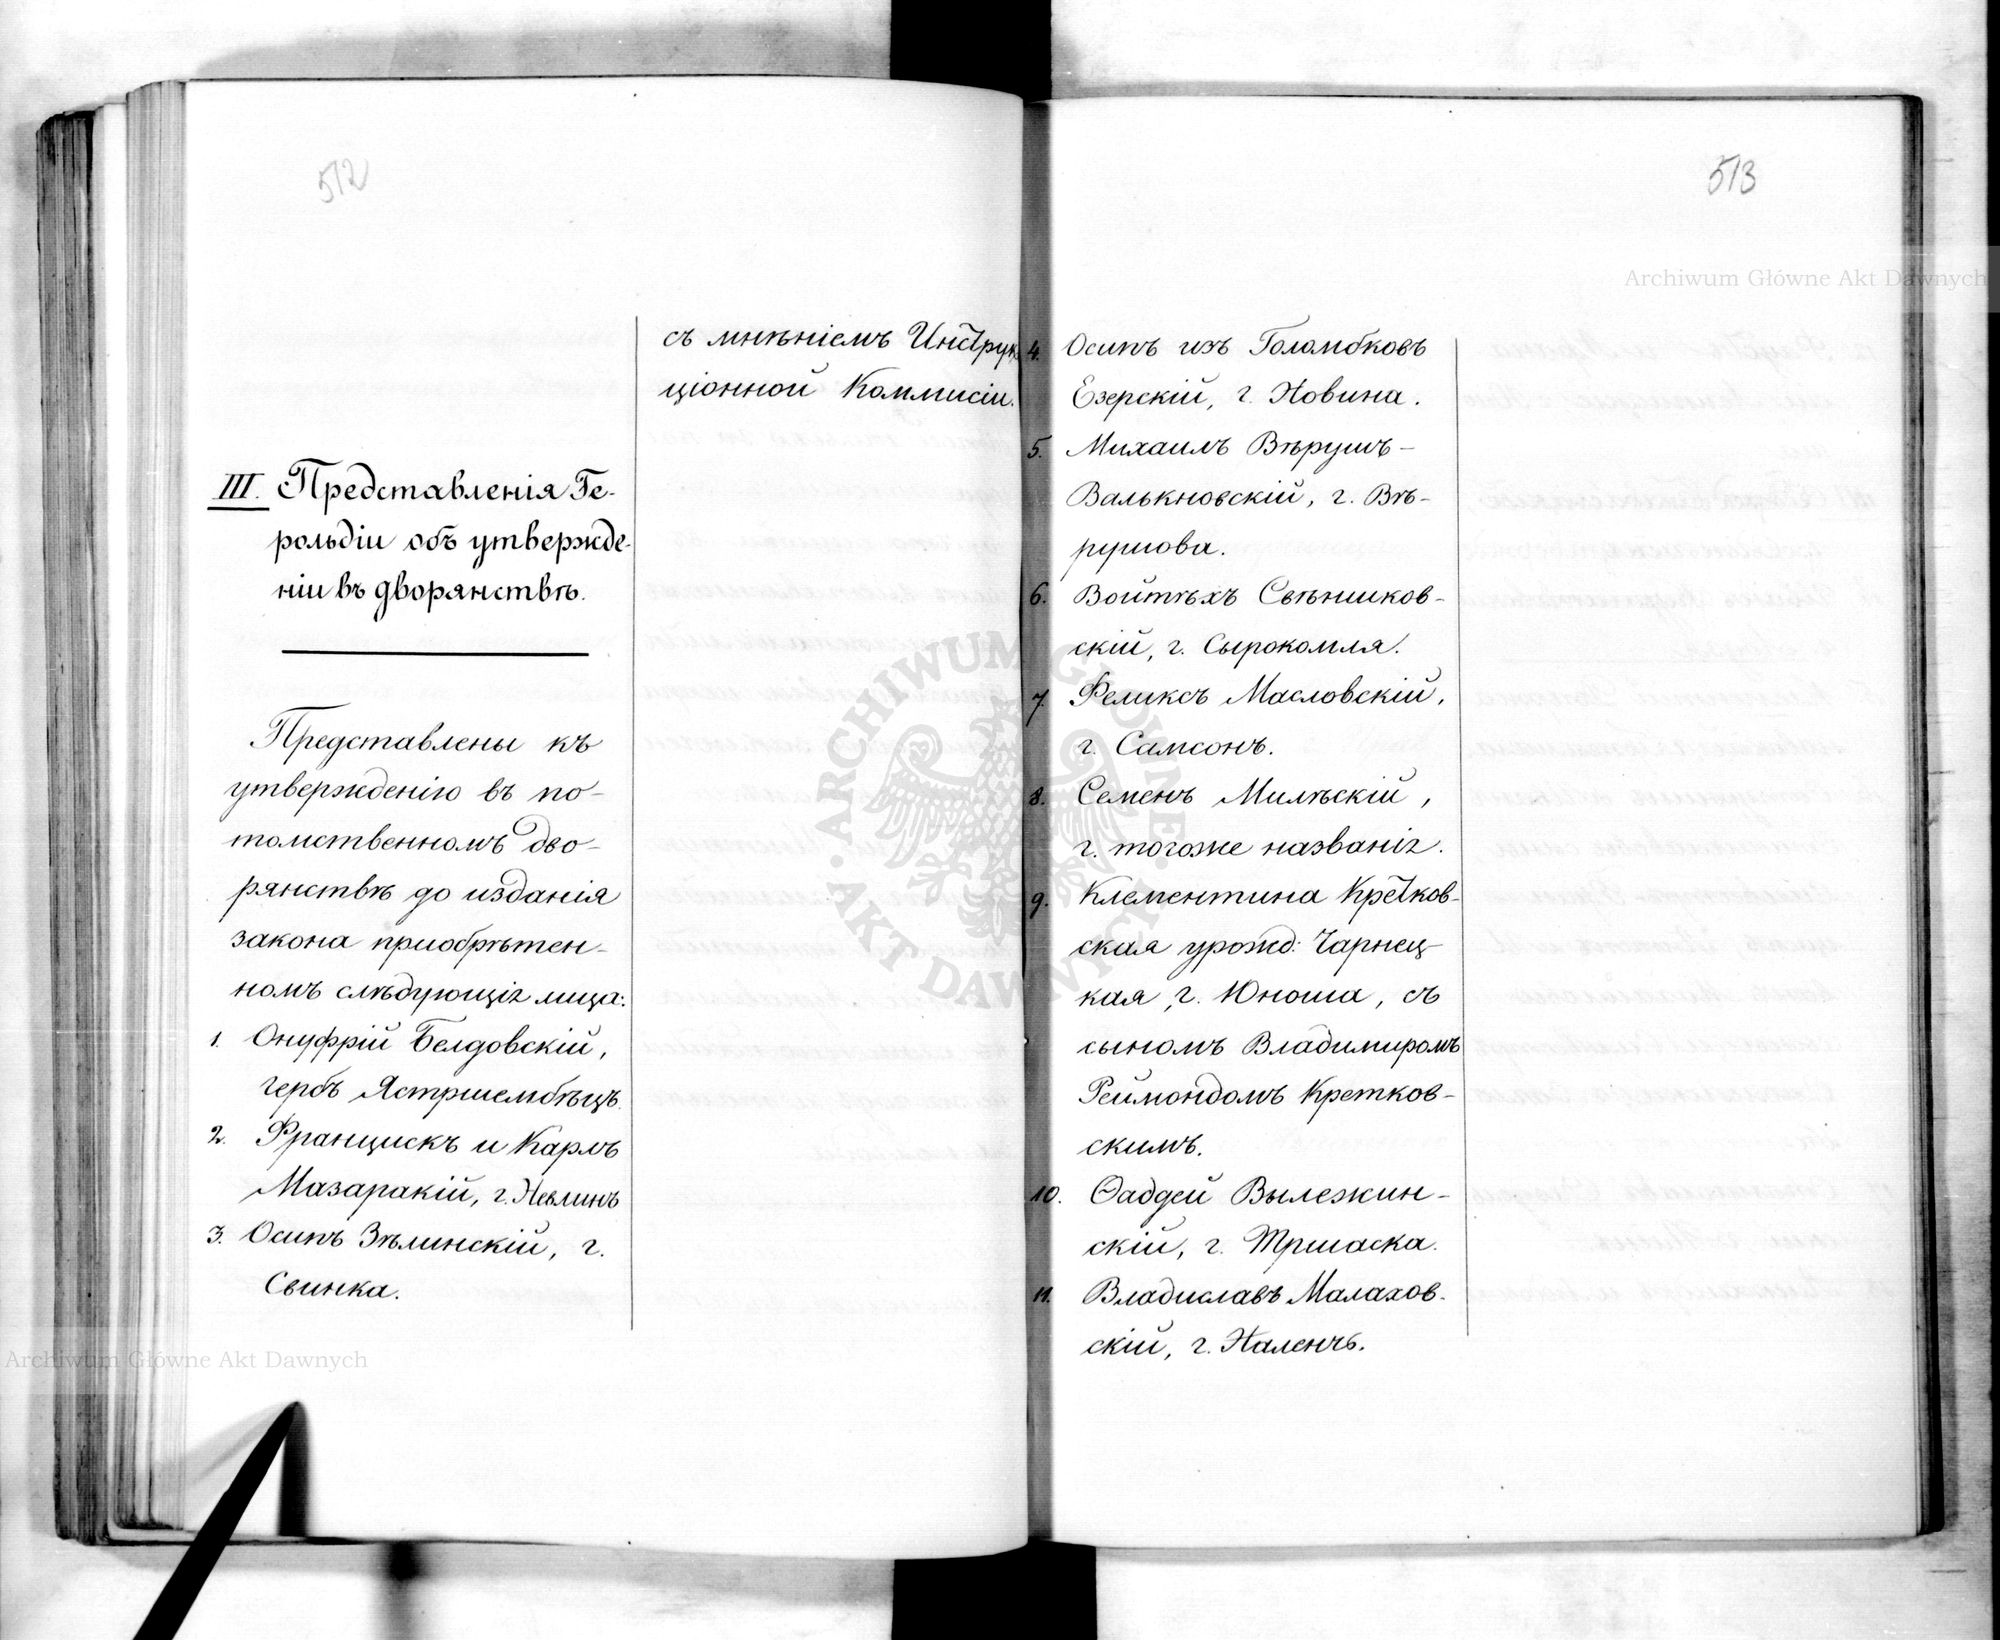 512
съ мнѣніемъ Инструк
ціонной Коммисіи.
III. Представленія Ге-
рольдіи объ утвержде-
ніи въ дворянствѣ.
Представлены къ
утвержденію въ по-
томственномъ дво-
рянствѣ до изданія
закона пріобрѣтен-
номъ слѣдующіе лица:
1. Онуфрій Белдовскій,
гербъ Ястршембѣцъ.
2. Францискъ и Карлъ
Мазаракій, г. Невлинъ
3. Осипъ Зѣлинскій, г.
Свинка.
513
4. Осипъ изъ Голомбковъ
Езерскій, г. Новина.
5. Михаилъ Вѣрушъ-
Валькновскій, г. Вѣ-
рушова.
6. Войтѣхъ Свѣншков-
скій, г. Сырокомля.
7. Феликсъ Масловскій,
г. Самсонъ.
8. Семенъ Милѣскій,
г. тогоже названіе.
9. Клементина Кретков-
ская урожд: Чарнец-
кая, г. Юноша, съ
сыномъ Владимиромъ
Реймондомъ Кретков-
скимъ.
10. Ѳаддей Вылежин-
скій, г. Тршаска.
11. Владиславъ Малахов-
скій, г. Наленчъ.
Archiwum Główne Akt Dawnych
Archiwum Główne Akt Dawnych
ARCHIWUM GŁÓWNE AKT DAWNYCH